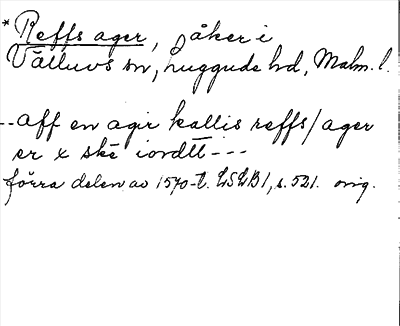 * Reffs ager, åker i
Välluvs sn, Luggude hd, Malm. l.
--aff en agir kallis reffs/ager
er x ske iordtt---
förra delen av 1570-t. LSLB1, s. 521. orig.